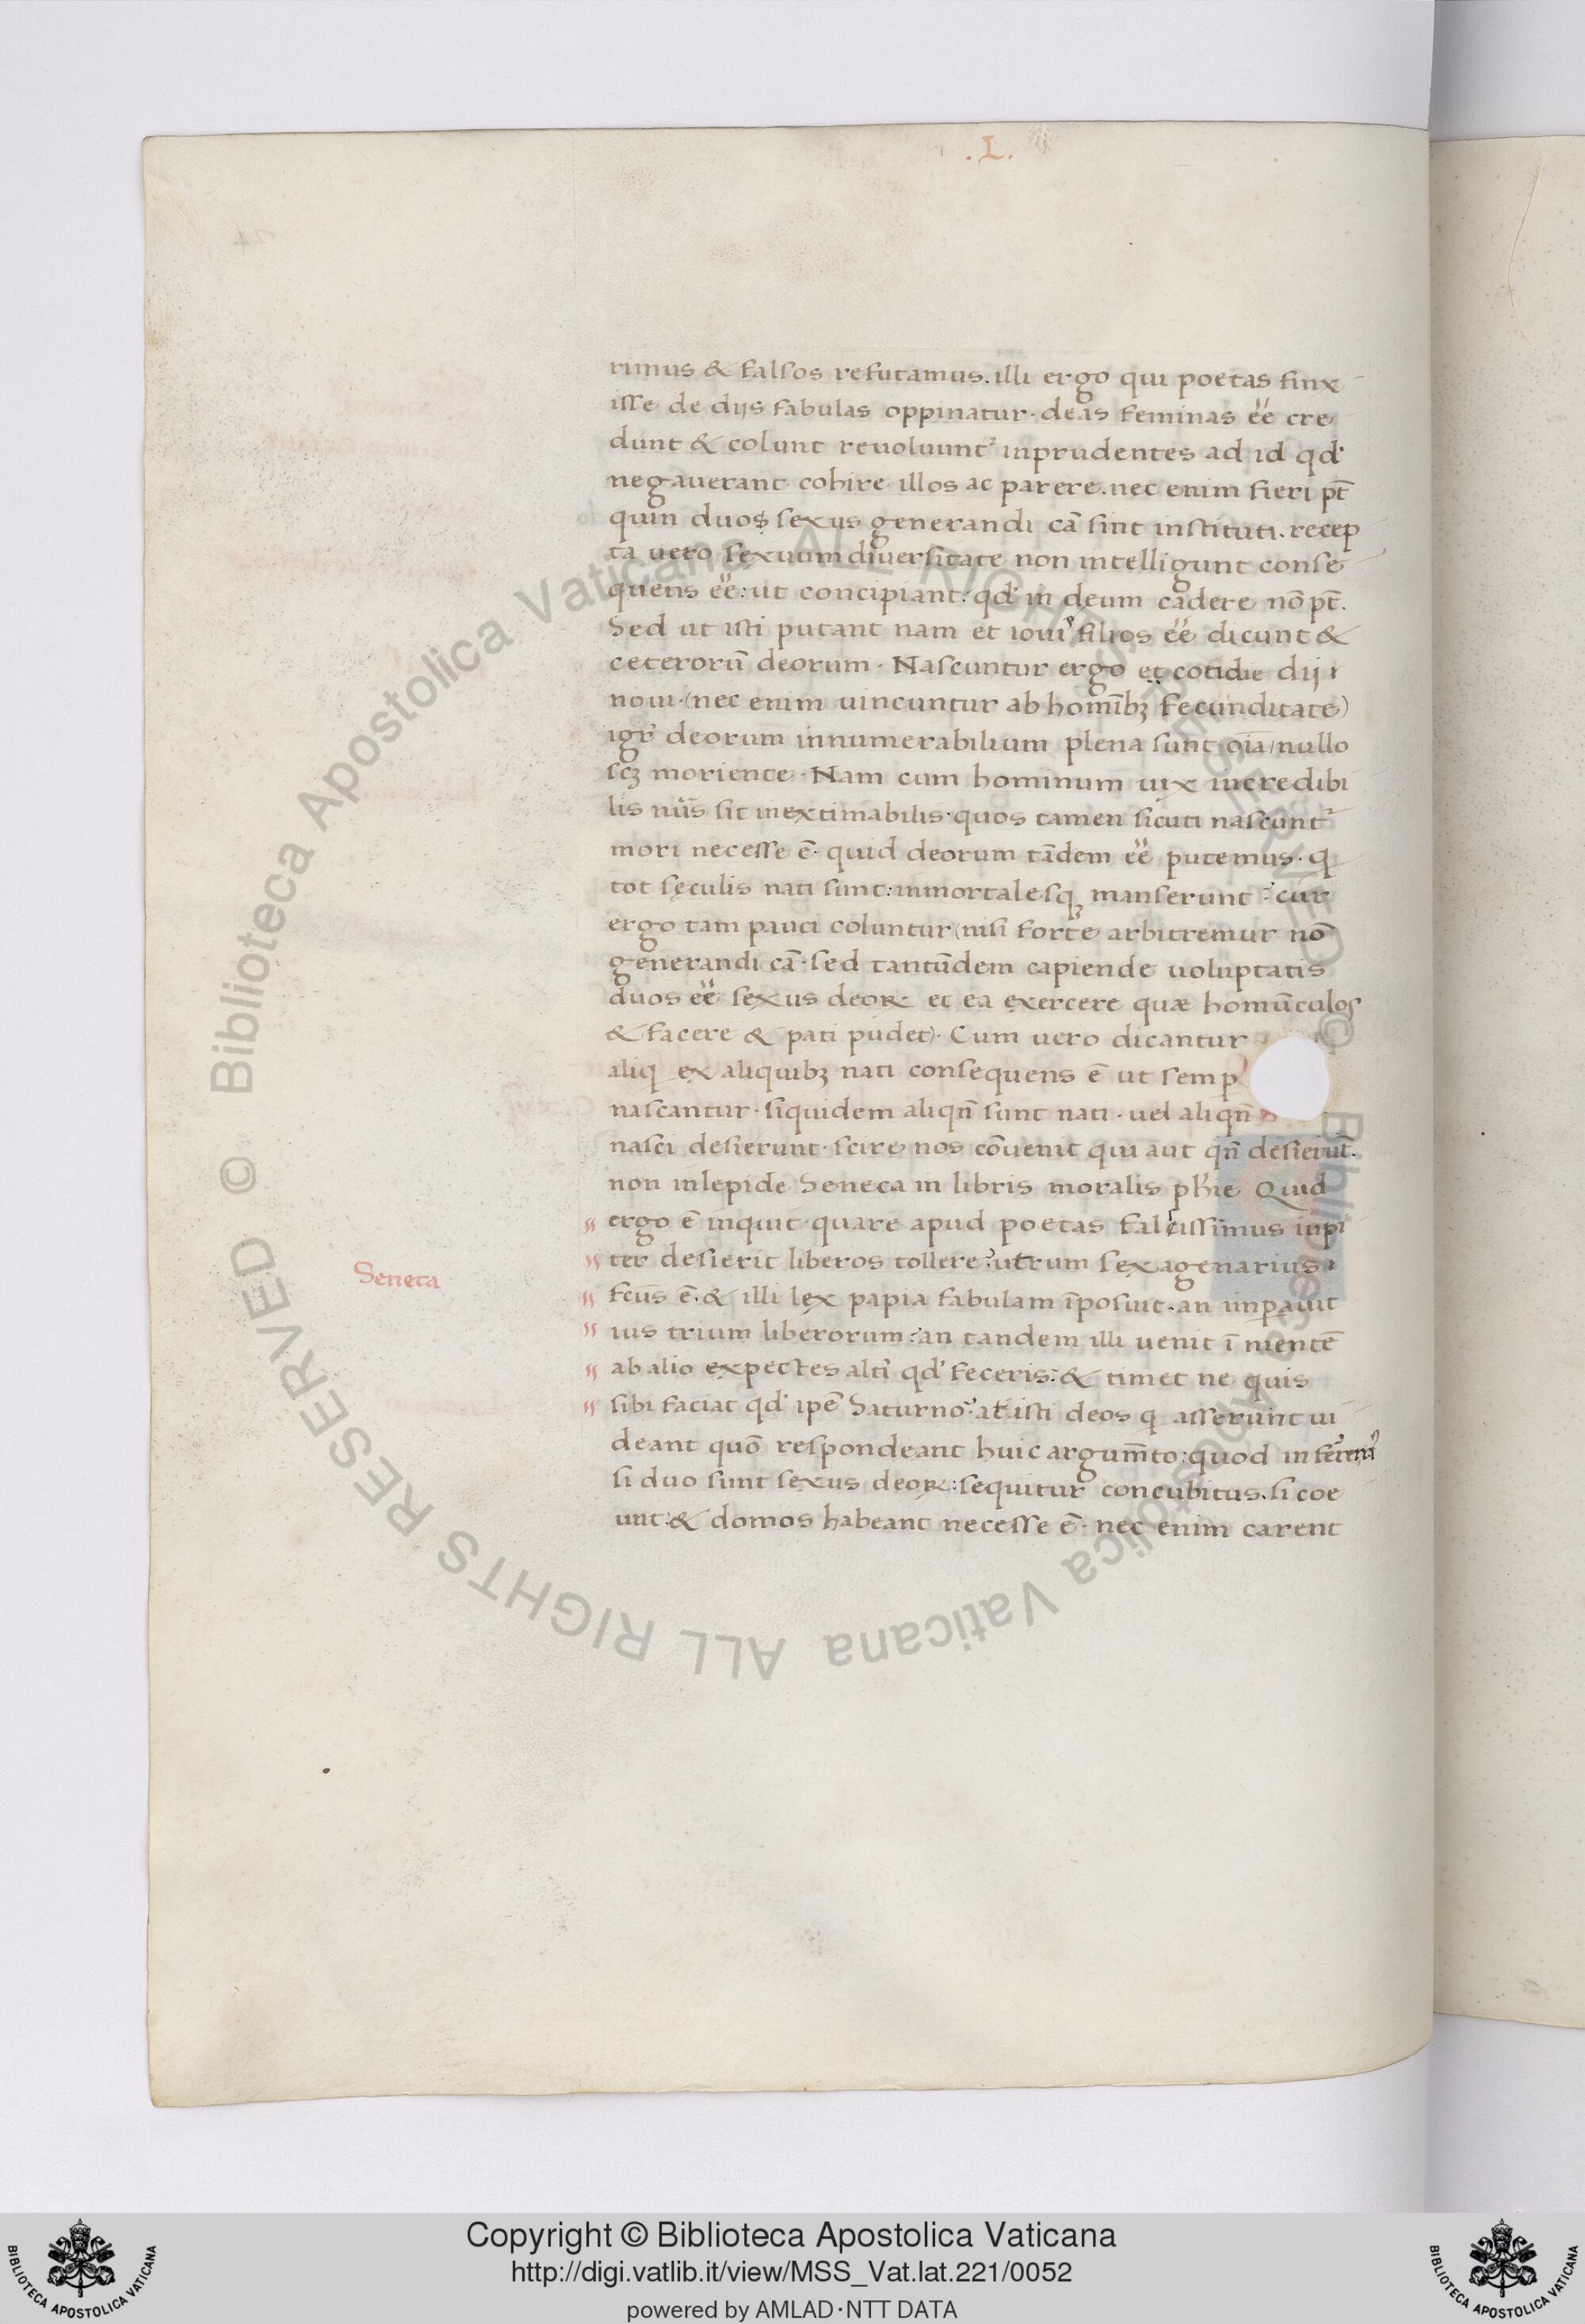 .L.
rimus & falsos refutamus. illi ergo qui poetas finx
isse de dijs fabulas oppinatur. deas feminas ee͂ cre
dunt & colunt revoluunt᷑ inprudentes ad id qd'
negauerant cohire illos ac parere. nec enim fieri pt̄
quin duo sexus generandi cā sint instituti. recep
ta uero sexuum diuersitate non intelligunt conse
quens ee͂: ut concipiant: qd' in deum cadere nō pt̄.
Sed ut isti putant nam et ioui' filios ee͂ dicunt &
ceterorū deorum. Nascuntur ergo et cotidie dij
noui. (nec enim uincuntur ab homībꝫ fecunditate)
igr̄ deorum innumerabilium plena sunt oīa/nullo
scꝫ moriente. Nam cum hominum uix incredibi
lis nūs sit inextimabilis. quos tamen sicuti nascunt᷑
mori necesse ē. quid deorum tādem ee͂ putemus. q
tot sęculis nati sunt: inmortalesqꝫ manserunt? cur
ergo tam pauci coluntur (nisi forte arbitremur nō
generandi cā. sed tantūdem capiende uoluptatis
duos ee͂ sexus deoꝝ et ea exercere quæ homūculos
& facere & pati pudet). Cum uero dicantur
aliq ex aliquibꝫ nati consequens ē ut semp
nascantur. siquidem aliqn̄ sunt nati. uel aliqn̄
nasci desierunt. scire nos cōuenit qui aut qn̄ desierūt.
non inlepide Seneca in libris moralis ph̄ie Quid
" ergo ē inquit. quare apud poetas falcissimus iupi
" ter desierit liberos tollere? utrum sexagenarius
Seneca
" fcūs ē. & illi lex papia fabulam īposuit. an impauit
" ius trium liberorum? an tandem illi uenit ī mentē
" ab alio expectes altī qd' feceris: & timet ne quis
" sibi faciat qd' ipē Saturno? at isti deos q asserunt ui
deant quō respondeant huic argum̄to: quod
si duo sunt sexus deoꝝ: sequitur concubitus. si coe
unt: & domos habeant necesse ē. nec enim carent
© Biblioteca Apostolica Vaticana ALL RIGHTS RESERVED
© Biblioteca Apostolica Vaticana ALL RIGHTS RESERVED
Copyright © Biblioteca Apostolica Vaticana
http://digi.vatlib.it/view/MSS_Vat.lat.221/0052
powered by AMLAD·NTT DATA
BIBLIOTECA APOSTOLICA VATICANA
BIBLIOTECA APOSTOLICA VATICANA